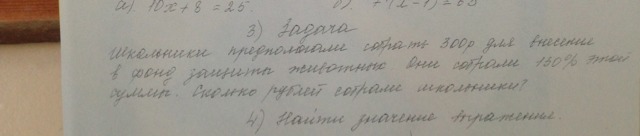 а). 10х+8=25.
3) Задача
Школьники предполагали собрать 300р для внесение
в фонд защиты животных Они собрали 150% этой
суммы. Сколько рублей собрали школьники?
4) Найти значение выражения.